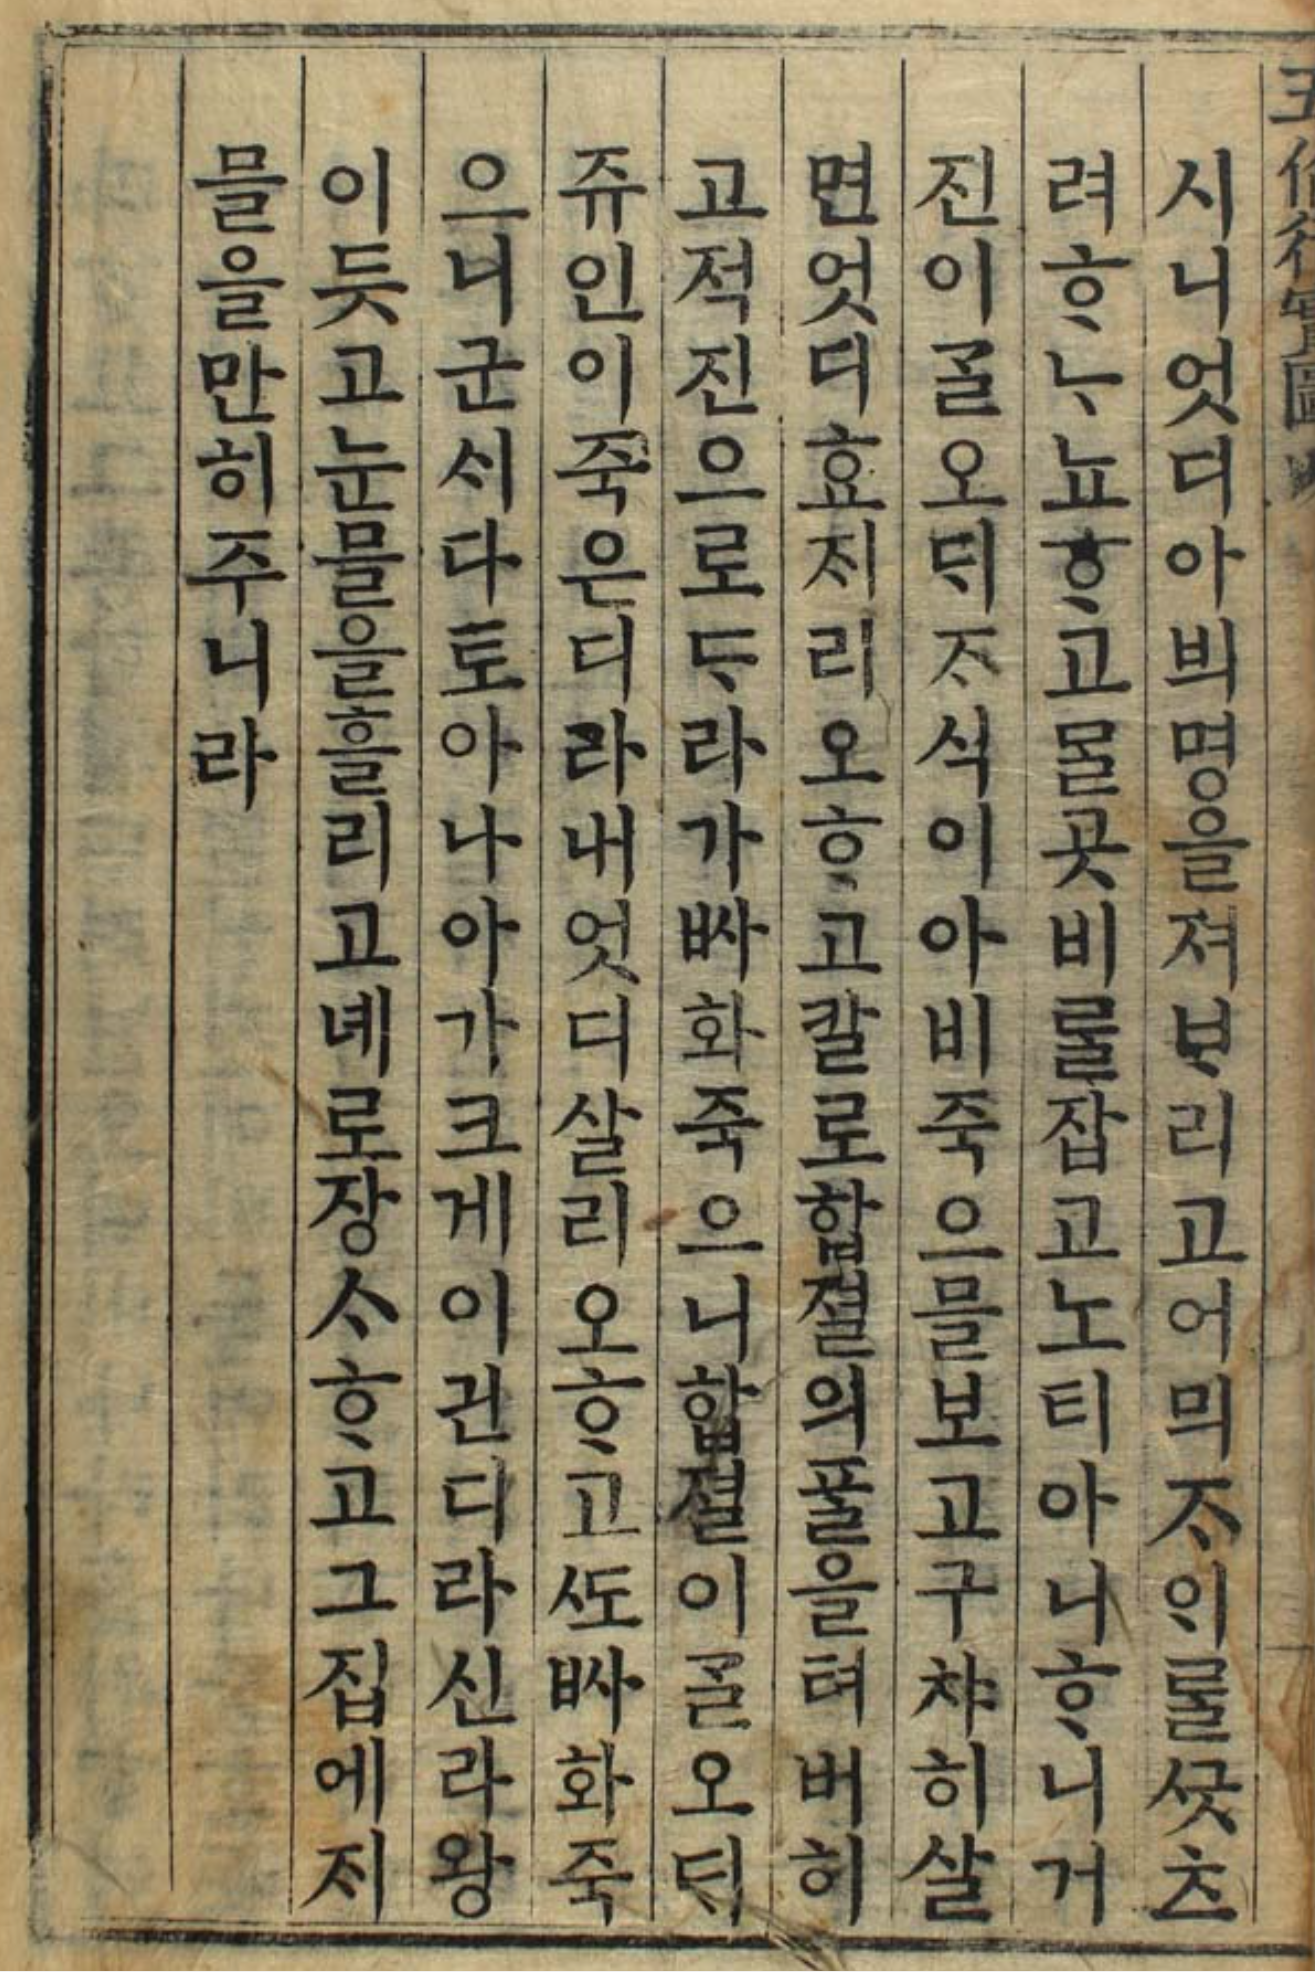 五倫行實圖
시니엇디아븨명을져ᄇᆞ리고어믜ᄌᆞᄋᆡᄅᆞᆯᄭᅳᆺ츠
려ᄒᆞᄂᆞ뇨ᄒᆞ고ᄆᆞᆯ곳비ᄅᆞᆯ잡고노티아니ᄒᆞ니거
진이ᄀᆞᆯ오ᄃᆡᄌᆞ식이아비죽으믈보고구챠히살
면엇디효ᄌᆡ리오ᄒᆞ고칼로합졀의ᄑᆞᆯ을텨버히
고적진으로ᄃᆞ라가ᄡᅡ화죽으니합졀이ᄀᆞᆯ오ᄃᆡ
쥬인이죽은디라내엇디살리오ᄒᆞ고ᄯᅩᄡᅡ화죽
으니군ᄉᆡ다토아나아가크게이긘디라신라왕
이듯고눈믈을흘리고녜로장ᄉᆞᄒᆞ고그집에ᄌᆡ
믈을만히주니라